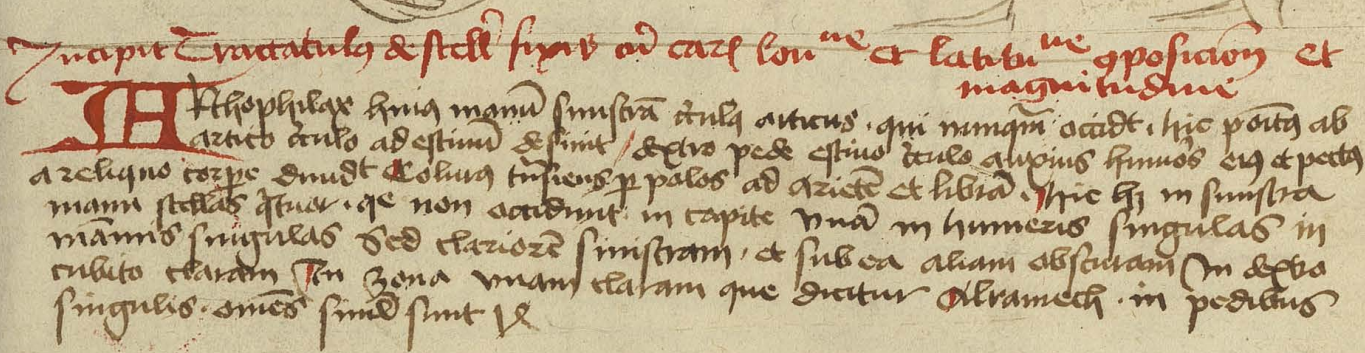 Incipit Tractatulus de stell fixis cu earu lonne et latitune oposicion et
magnitudine
Arthophilax huius manu sinistra circulus articus . qui nunquam occidt . hic positus ab
artico circulo ad estiuu desinit dextro pede estiuo circulo humeros eius et pectus
a reliquo corpe diuidt Colurus transiens per polos ad ariete et libra . hic hz in sinistra
manu stellas qtuor . qe non occidunt in capite vna in humeris singulas in
manis singulas Sed clariore sinistram . et sub ea aliam obscuram In dextro
cubito claram In zona vnam claram que dicitur Alramech . in pedibus
singulis . omes simul sunt